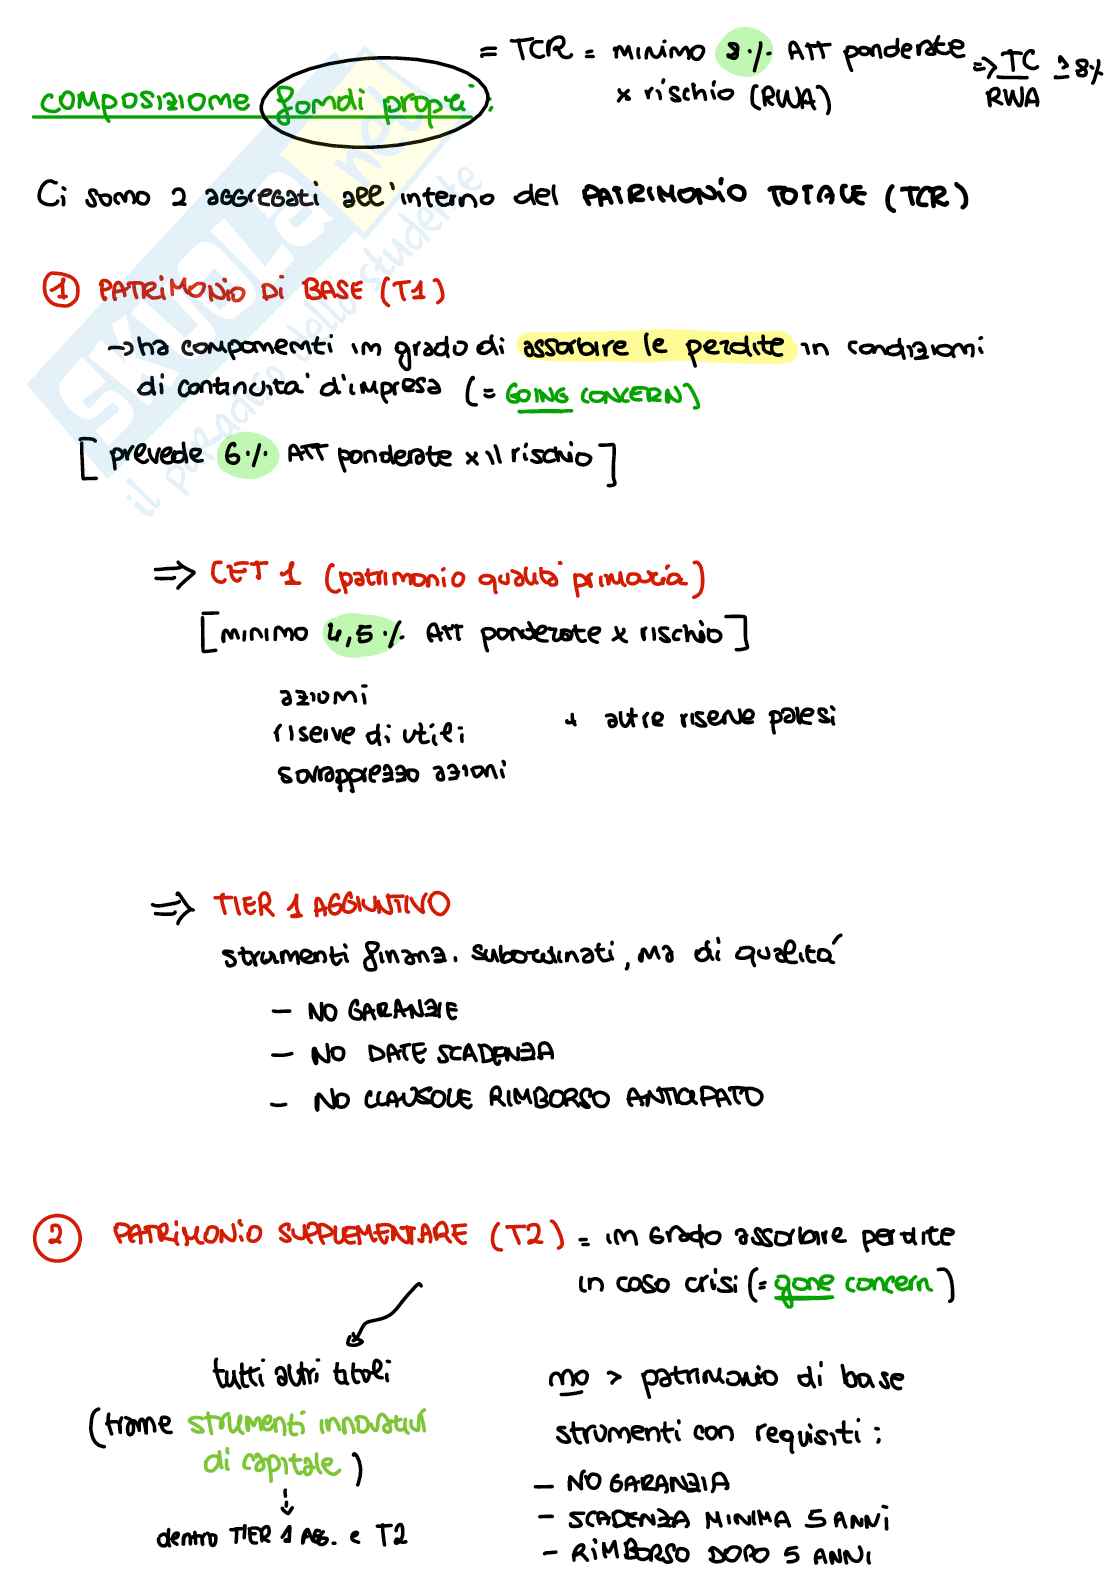 = TCR = minimo 8% ATT ponderate => TC/RWA ≥ 8%
x rischio (RWA)
COMPOSIZIONE fondi propri:
Ci sono 2 aggregati all'interno del PATRIMONIO TOTALE (TCR)
① PATRIMONIO DI BASE (T1)
→ ha componenti in grado di assorbire le perdite in condizioni
di continuità d'impresa (= GOING CONCERN)
[prevede 6% ATT ponderate x il rischio]
⇒ CET 1 (patrimonio qualità primaria)
[minimo 4,5% ATT ponderate x rischio]
azioni
riserve di utili + altre riserve palesi
sovrapprezzo azioni
⇒ TIER 1 AGGIUNTIVO
strumenti finanz. subordinati, ma di qualità
- NO GARANZIE
- NO DATE SCADENZA
- NO CLAUSOLE RIMBORSO ANTICIPATO
② PATRIMONIO SUPPLEMENTARE (T2) = in grado assorbire perdite
in caso crisi (= gone concern)
tutti altri titoli
(trame strumenti innovativi
di capitale)
↓
dentro TIER 1 AG. e T2
no > patrimonio di base
strumenti con requisiti:
- NO GARANZIA
- SCADENZA MINIMA 5 ANNI
- RIMBORSO DOPO 5 ANNI
SKUOLA.net
il paradiso dello studente